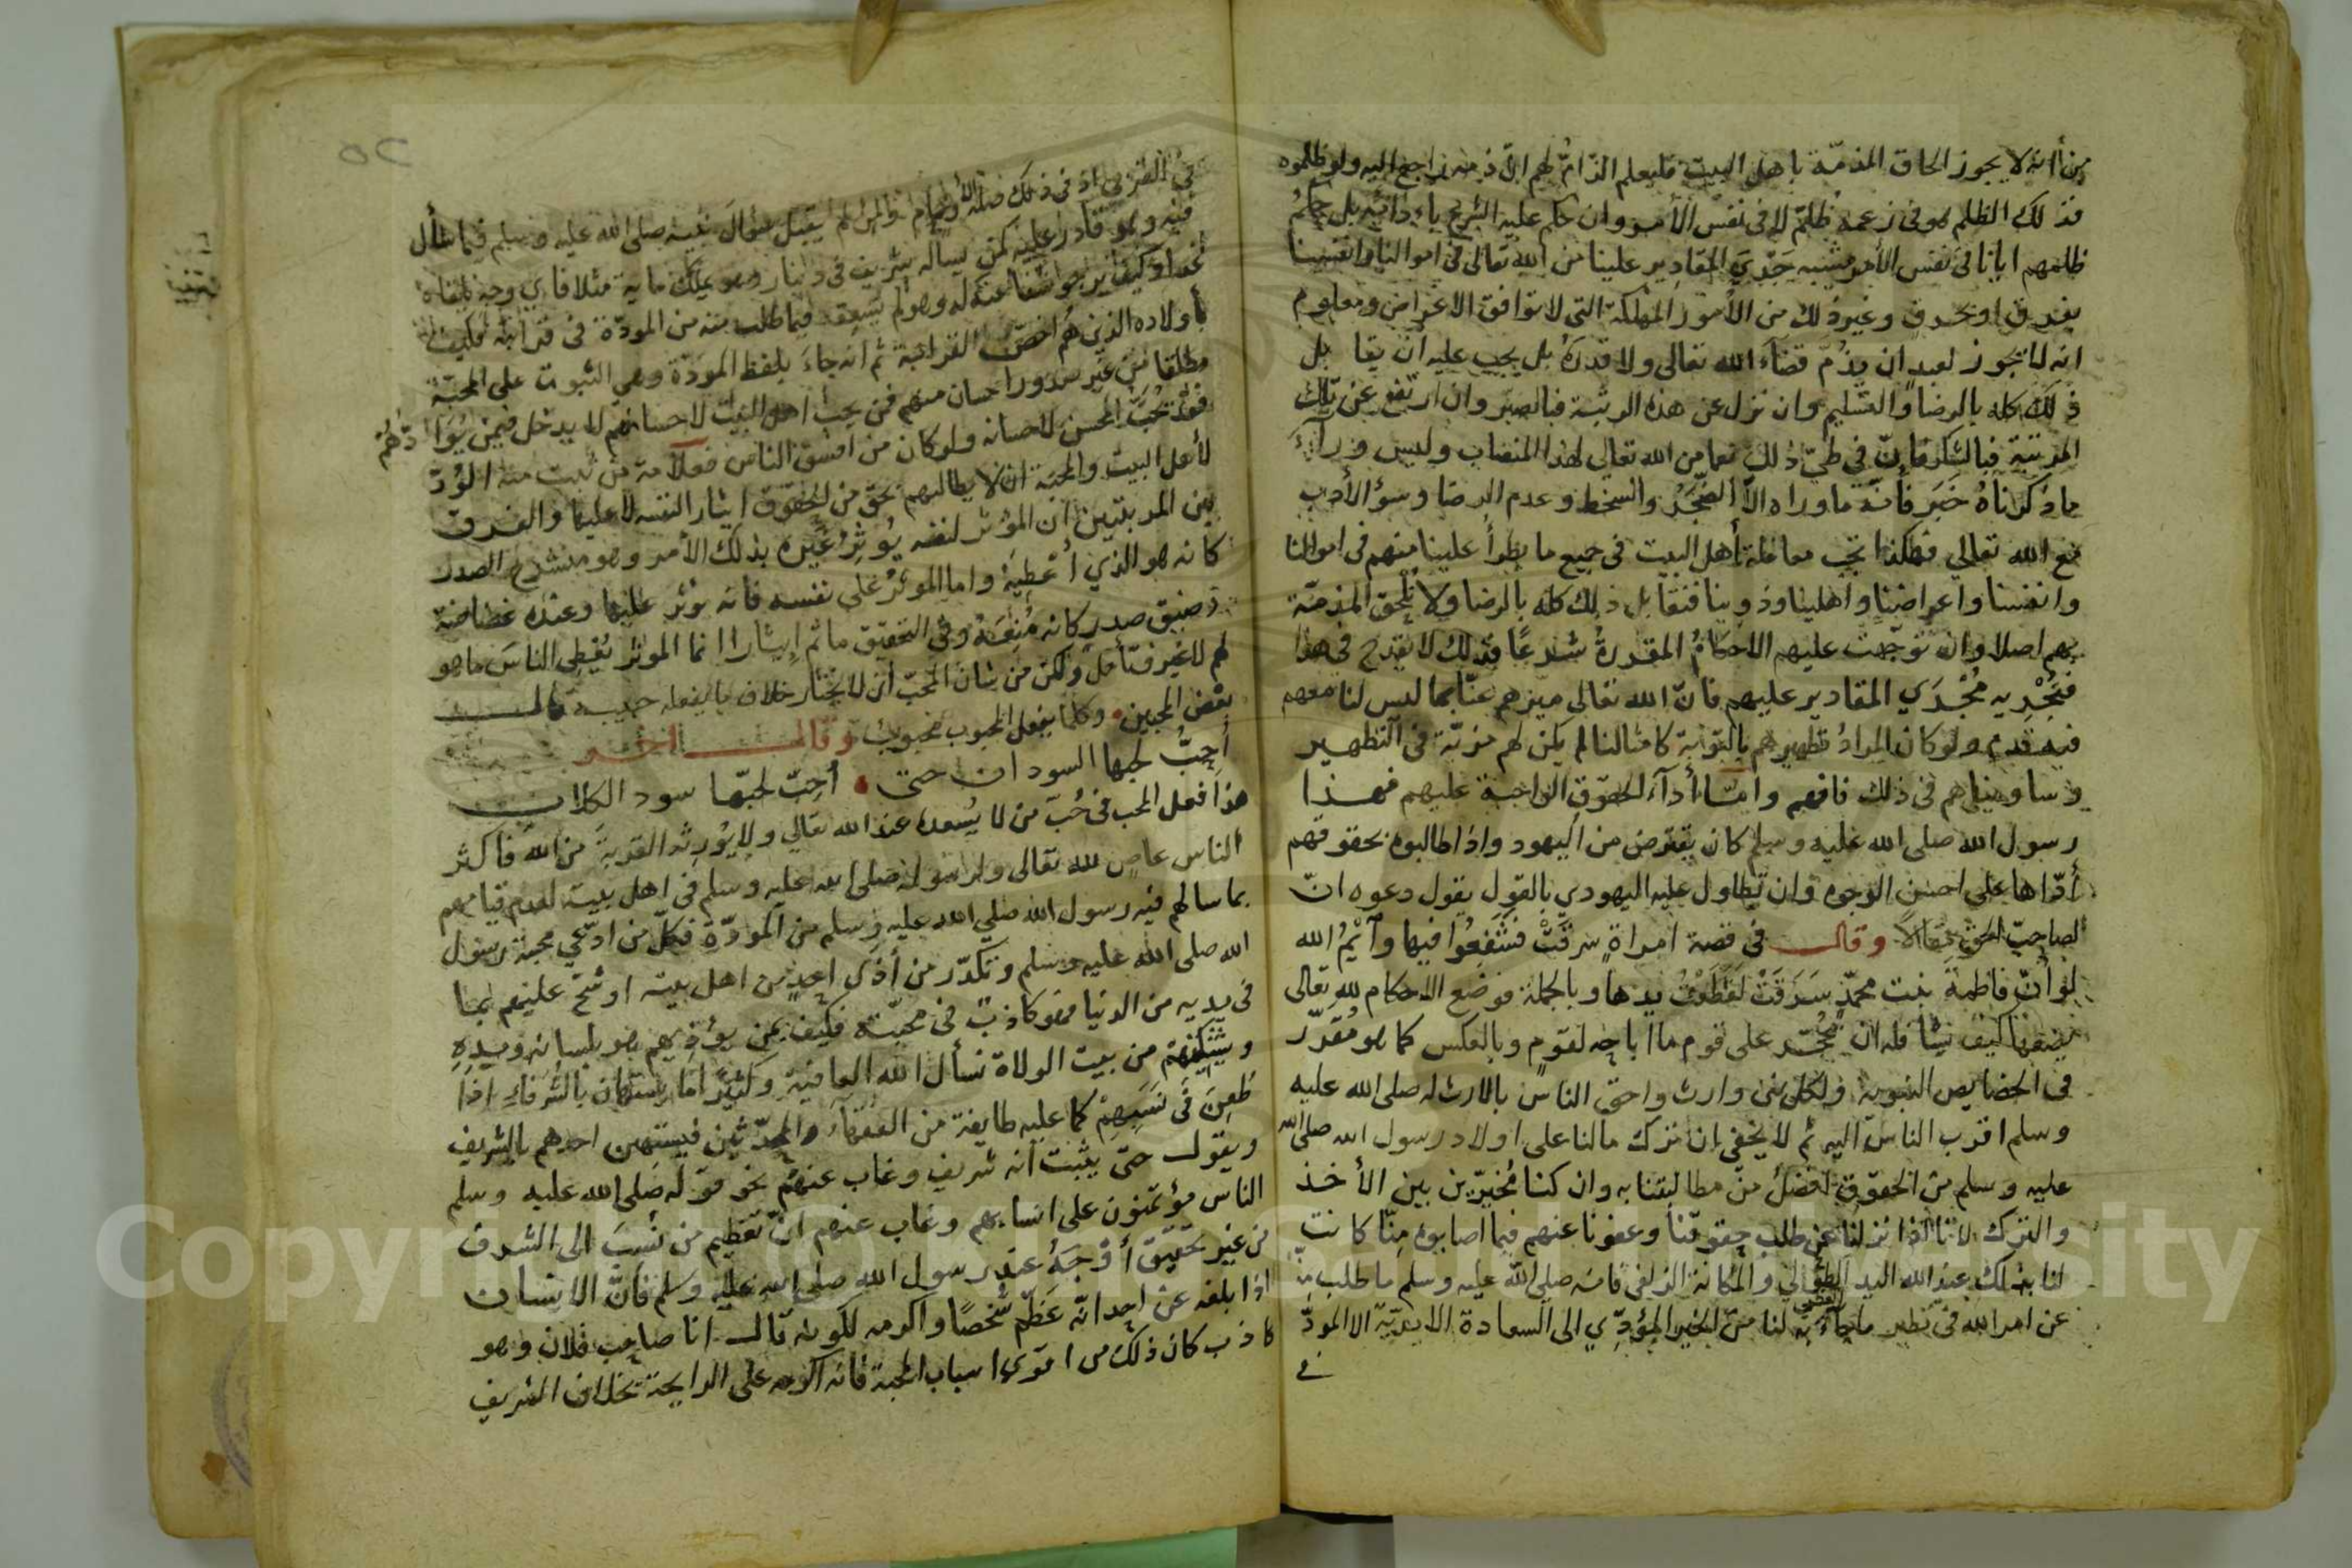 من أنه لا يجوز الحاق المذمّة باهل البيت فليعلم الذامّ لهم انّ ذمه راجع اليه ولو ظلموه
فذلك الظلم هو في زعمه ظلمٌ لا في نفس الأمر وان حكم عليه الشرع باءدائه بل حكمُ
ظلمهم ايانا في نفس الأمر يشبه جَرْيَ المقادير علينا من الله تعالى في اموالنا وانفسنا
بغرق او بحرق وغير ذلك من الأمور المهلكة التي لا توافق الاغراض ومعلوم
انه لا يجوز لعبد ان يذُمّ قضآء الله تعالى ولا قدرَهُ بل يجب عليه ان يقابل
ذلك كله بالرضا والتسليم وان نزل عن هذه الرتبة فبالصبر وان ارتفع عن تلك
المرتبة فبالشكر فإنّ في طيّ ذلك نعما من الله تعالى لهذا المصاب وليس ورآءَ
ما ذكرناهُ خَير فأنّه ما وراه الاّ الضَّجَرُ والسخط وعدم الرضا وسؤ الأدب
مع الله تعالي فهكذا تجب معاملة أهل البيت في جميع ما يطرأُ علينا منهم في اموالنا
وانفسنا واعراضنا واهلينا وذوينا فنقابل ذلك كله بالرضا ولا نُلحق المذمّة
بهم اصلا وان توجّهت عليهم الاحكامُ المقدرةُ شرعًا فذلك لا يقدح في هذا
فنُجْرِيه مُجْرَي المقادير عليهم فانّ الله تعالى ميّزهم عنّا بما ليس لنا معهم
فيه قدم ولو كان المرادُ تطهيرهم بالتوبة كامثالنا لم يكن لهم مزيّة في التطهير
وساويناهم في ذلك فافهم وامّا أدآء الحقوق الواجبة عليهم فهذا
رسول الله صلى الله عليه وسلم كان يقترض من اليهود واذا طالبوه بحقوقهم
أدّاها على احسن الوجوه وان تطاول عليه اليهودي بالقول يقول دعوه انّ
لصاحب الحق مقالاً وقال في قصة امراةٍ سرقَتْ فشفعوا فيها وآيْمُ الله
لو أنّ فاطمةَ بنت محمّدٍ سَرَقَتْ لقطعْتُ يدها وبالجملة فوضع الاحكام لله تعالى
يضعها كيف يشا فله ان يُحجّر على قوم ما اباحه لقوم وبالعكس كما هو مُقدّر
في الخصايص النبوية ولكل نبى وارث واحق الناس بالارث له صلى الله عليه
وسلم اقرب الناس اليه ثم لا يخفى ان ترك مالنا على اولاد رسول الله صلى الله
عليه وسلم من الحقوق افضلُ من مطالبتنا به وان كنا مُخيّرين بين الأخذ
والترك لاننا اذا نزلنا عن طلب حقوقنا وعفونا عنهم فيما اصابوه مِنّا كانت
لنا بذلك عند الله اليد الطولي والمكانة الزلفى فانه صلى الله عليه وسلم ما طلب منّا
عن امر الله في نظير ما جآء به لنا من الخير المؤدّي الى السعادة الابديّة الا المودّة
في
٥٢
في القربى اذ في ذلك صلة الأرحام ومن لم يقبل سؤال نبيه صلى الله عليه وسلم فيما سأل
فيه وهو قادر عليه كمن يساله شريف في دينار وهو يملك ماية مثلا فاي وجه يلقاه
غدا وكيف يرجو شفاعته له وهو لم يُسعِفه فيما طلب منه من المودّة في قرابته فكيف
بأولاده الذين هم اخصّ القرابة ثم انه جاءَ بلفظ المودّة وهي الثبوت على المحبّة
مطلقا من غير صدور احسان منهم فمن يحبّ اهل البيت لاحسانهم لا يدخل فيمن يُوَادّهُمْ
فقد تُحِبُّ المحسن لاحسانه ولو كان من افسق الناس فعلامة من ثبت منه الوُدّ
لأهل البيت والمحبّة ان لا يطالبهم بحق من الحقوق ايثار النفسه لا عليها والفرق
بين المرتبتين ان المؤثر لنفسه يُوثِرُ غيره بذلك الأمر وهو منشرح الصدر
كانه هو الذي أُعْطِيَهُ واما الموثرُ على نفسه فانه يوثر عليها وعنده غضاضة
وضيق صدر كانه مُنِعَهُ وفي التحقيق ما ثم إيثار اانما الموثر يُعْطِي الناسَ ما هو
لهم لا غير فتأمل ولكن من شان المحبّ ان لا يختار خلاف ما يفعله حبيبه قال
بعض المحبين وكلما يفعل المحبوب محبوب وقال اخر
أُحِبُّ لحبها السودان حتى أُحِبّ لحبّها سود الكلاب
هذا فعل المحب في حُبّ من لا يُسعده عند الله تعالي ولا يُورِثه القربة من الله فأكثر
الناس عاصٍ لله تعالى ولرسوله صلى الله عليه وسلم في اهل بيته لعدم قيامهم
بما سالهم فيه رسول الله صلي الله عليه وسلم من المودّة فكلّ من ادّعي محبة رسول
الله صلى الله عليه وسلم وتكدّر من أذَى احدٍ من اهل بيته او شحّ عليهم بما
في يديه من الدنيا فهو كاذبٌ في محبّته فكيف بمن يؤذيهم هو بلسانه ويده
ويشتكيهم من بيت الولاة نسأل الله العافية وكثيرًا ما يستهان بالشرفاءِ اذا
طُعِنَ في نَسَبِهِمْ كما عليه طايفة من الفقهآء والمحدّثين فيستهين احدهم بالشريف
ويقول حتى يثبت أنه شريف وغاب عنهم نحو قوله صلى الله عليه وسلم
الناس مؤتمنون على انسابهم وغاب عنهم انّ تعظيم من نُسِبَ الى الشرف
من غير تحقيق أوْجَهُ عند رسول الله صلى الله عليه وسلم فانّ الانسان
اذا بلغه عن احد انّه عَظّم شخصًا واكرمه لكونه قال انا صاحب فلان وهو
كاذب كان ذلك من اقوي اسباب المحبة فانه اكرمه على الرايحة بخلاف الشريف
Copyright © King Saud University